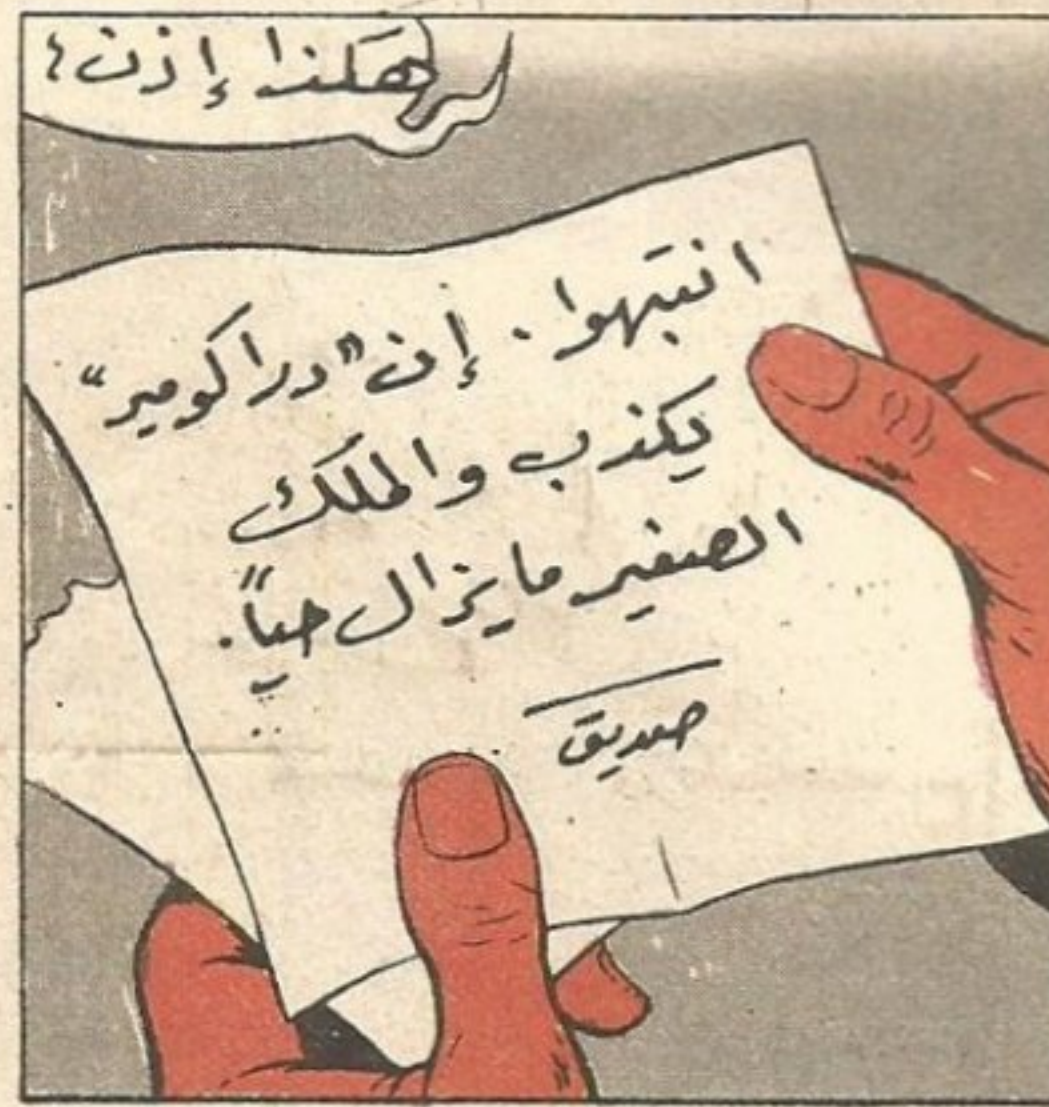 هكذا إذن؟
انتبهوا. إن "دراكومير"
يكذب والملك
الصغير ما يزال حياً.
صديق